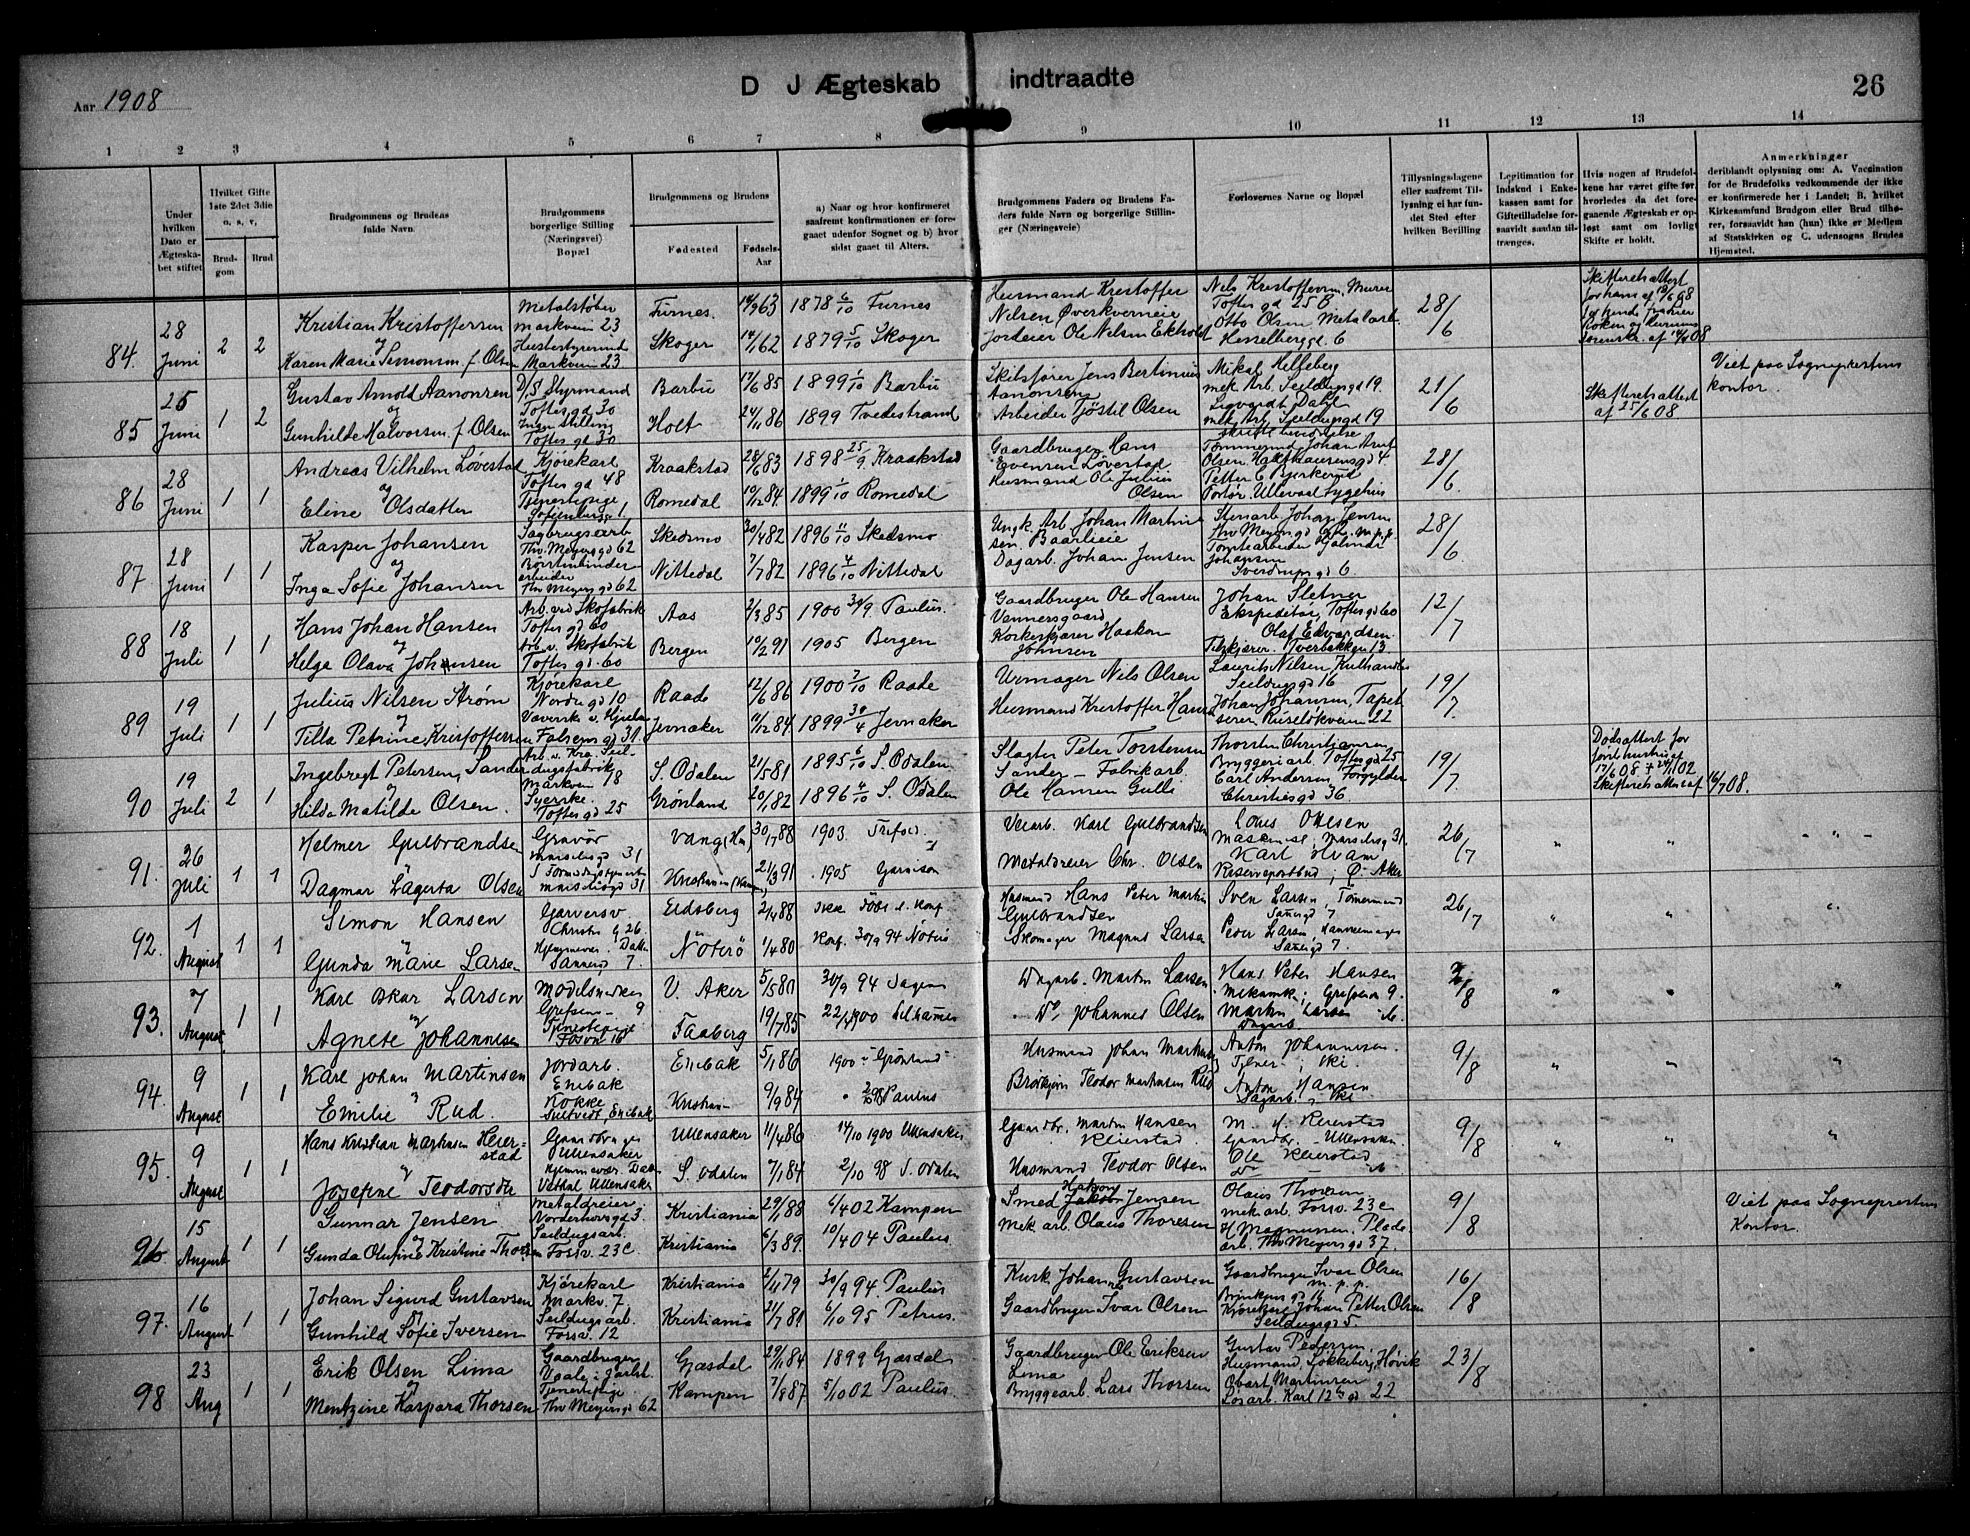 Aar 1908
D J Ægteskab indtraadte
26
1 2 3 4 5 6 7 8 9 10 11 12 13 14
Under hvilken Dato er Ægteskabet stiftet
Hvilket Gifte 1ste 2det 3die o, s, v,
Brudgom
Brud
Brudgommens og Brudens fulde Navn.
Brudgommens borgerlige Stilling (Næringsvei) Bopæl
Brudgommens og Brudens
Fødested
Fødsels-Aar
a) Naar og hvor konfirmeret saafremt konfirmationen er foregaaet udenfor Sognet og b) hvor sidst gaaet til Alters.
Brudgommens Faders og Brudens Faders fulde Navn og borgerlige Stillinger (Næringsveie)
Forlovernes Navne og Bopæl
Tillysningsdagene eller saafremt Tillysning ei har fundet Sted efter hvilken Bevilling
Legitimation for Indskud i Enkekassen samt for Giftetilladelse forsaavidt saadan tiltrænges.
Hvis nogen af Brudefolkene har været gift før, hvorledes da det foregaaende Ægteskab er opløst samt om lovligt Skifte er holdt.
Anmerkninger
deriblandt oplysning om: A. Vaccination for de Brudefolks vedkommende der ikke er konfirmerede her i Landet; B. hvilket Kirkesamfund Brudgom eller Brud tilhører, forsaavidt han (hun) ikke er Medlem af Statskirken og C. udensogns Brudes Hjemsted.
84. 28 Juni 2 2
Kristian Kristoffersen
Metalstøber
Markveien 23
Furnes. 14/9 63
1878 6/10 Furnes
Husmand Kristoffer
Nilsen Øverkverneie
Nils Kristoffersen, Murer
Toftes gd 25 B
28/6
og
Karen Marie Simonsen f. Olsen
Markveien 23
Skoger 14/1 62
1879 5/10 Skoger
Jordeier Ole Nilsen Ekholdt
Otto Olsen Metalarb.
Hesselberggd 6
85 25 Juni 1 2
Gustav Arnold Aanonsen
D/S Styrmand
Toftes gd 30
Barbu 17/6 85
1899 1/10 Barbu
Skibsfører Jens Bertinius
Aanonsen
Mikal Helfeberg
mek Arb. Seildugsgd 19.
21/6
Skifteretsattest
af 25/6 08
Viet paa Sogneprestens
kontor.
og
Gunhilde Halvorsen f. Olsen
Ingen Stilling
Toftes gd. 30
Holt 24/11 86
1899 Tvedestrand
Arbeider Tjøstil Olsen
Sigvardt Dahl
mek. Arb. Seildugsgd 19
86 28 Juni 1 1
Andreas Vilhelm Løvestad
Kjørekarl
Toftes gd 48
Kraakstad 28/6 83
1898 25/9 Kraakstad
Gaardbruger Hans
Evensen Løvestad
28/6
og
Eline Olsdatter
Tjenestepige
Romedal 10/12 84.
1899 1/10 Romedal
Husmand Ole Julius
Olsen
Portør Ullevaal Sygehus
87 28 Juni 1 1
Kasper Johansen
Sagbrugsarb
Thv. Meyersgd 62
Skedsmo 30/4 82
1896 11/10 Skedsmo
Ungk. Arb. Johan Martin
sen. Baarlieie
28/6
og
Inga Sofie Johansen
Børstenbinder
arbeider
Thv. Meyers gd 62
Nittedal 7/7 82
1896 4/10 Nittedal
Dagarb. Johan Jensen
Tomtearbeider Hjalmar
Johansen
Sverdrups gd 6.
88 18 Juli 1 1
Hans Johan Hansen
Arb. ved Skofabrik
Toftes gd 60
Aas 2/3 85
1900 30/9 Paulus.
Gaardbruger Ole Hansen
Vannersgaard
Johan Sletner
Ekspeditør, Toftes gd 60
12/7
og
Helga Olava Johnsen
Arb. v. Skofabrik
Toftes gd. 60
Bergen 10/2 91
1905 Bergen
Korkeskjærer Haakon
Johnsen
Olaf Edvardsen
89 19 Juli 1 1
Julius Nilsen Strøm
Kjørekarl
Nordre gd 10
Raade 12/6 86
1900 7/10 Raade
Urmager Nils Olsen
Laurits Nilsen Kulhandler
Seildugsgd 16
19/7.
og
Tilla Petrine Kristoffersen
Falsens gd 31
Jevnaker 11/12 84
1899 30/4 Jevnaker
Husmand Kristoffer Hansen
Johan Johansen, Tapet
serer, Ruseløkveien 22
90 19 Juli 2 1
Ingebregt Petersen Sander
Arb. v. Kra Seil-
dugsfabrik
Markvn 18
S. Odalen 21/5 81
1895 6/10 S. Odalen
Slagter Peter Torstensen
Sander – Fabrikarb.
Thorsten Christiansen
Bryggeriarb. Toftesgd 25
19/7.
Dødsattest for
første hustru af
17/6 08
Skifteretsattest af 16/7 08.
og
Hilda Matilde Olsen.
Syerske.
Toftes gd 25
Grønland 20/1 82
1896 4/10 S. Odalen
Ole Hansen Gulli
Carl Andersen, Forgylder
Christies gd 36.
91. 26 Juli 1 1
Helmer Gulbrandsen
Gravør
Marselisgd 31
Vang (Hm 30/7 88
1903 Trefol.
Veiarb. Karl Gulbrandsen
Louis Olsen
Maskinist, Marselisg 31.
26/7 " " - " -
og
Dagmar Lagerta Olsen
Marselisgd 31
Kristiania (Kampen) 21/3 91
1905 Garnison
Metaldreier Chr. Olsen
Karl Hvam
Reservepostbud, Ø. Aker
92. 1 August 1 1
Simon Hansen
Garversv
Christies g 26.
Eidsberg 2/4 88
Ikke Døbt el. Konf.
Husmand Hans Peter Martin
Gulbrandsen
Sven Larsen, Tømermand
Sannergd 7
26/7 " " "
og
Gunda Marie Larsen
Hjemmevær. Datter
Sannergd 7.
Nøterø 1/4 80
Konf. 30/9 94 Nøterø
Skomager Magnus Larsen
Peder Larsen
Sannergd 7.
93. 7 August 1 1
Karl Oskar Larsen
Modelsnedker
Grefsen- 9
V. Aker 5/5 80
30/9 94 Sagene
Dagarb. Martin Larsen
Hans Peter Hansen
Mekanik., Grefsenv 9.
2/8 " " "
og
Agnete Johannesen
Tjenestepige
Fosvn 16
Faaberg 19/7 85
22/4 1900 Lilhamer
Do, Johannes Olsen
Martin Larsen
Dagarb.
94. 9 August 1 1
Karl Johan Martinsen
Jordarb.
Enebak
Enebak 5/1 86
1900 – Grønland
Husmand Johan Martinsen
Anton Johannesen.
Tjener, Ski
9/8 " " "
og
Emilie Rud.
Kokke
Kristian- 9/9 84
Paulus
Brolægger Teodor Martinsen Rud
Anton Hansen
Dagarb., Ski
95. 9 August 1 1
Hans Kristian Martinsen Heier-
stad
Gaardbruger
Ullensaker
Ullensaker 11/4 86
14/10 1900 Ullensaker
Gaardbr. Martin Hansen
Heierstad.
M. H. Heierstad
Gaardbr. – Ullensaker.
9/8 " " "
og
Josefine Teodorsdtr
Hjemmevær. Datter
Ullensaker
S. Odalen 7/1 84
2/10 98 S. Odalen
Husmand Teodor Olsen
Ole Heierstad
96. 15 August 1 1
Gunnar Jensen
Metaldreier
Nordenhovs gd 3.
Kristiania 29/1 88
6/4 02 Kampen
Smed Jakob Jensen
Olaus Thoresen
mek arb. Fossv. 23 c
9/8
Viet paa Sogneprestens
Kontor.
og
Gunda Olufine Kristine Thoresen
Seildugsarb.
Fossv. 23 C
Kristiania 6/3 89.
10/4 04 Paulus.
Mek arb. Olaus Thoresen
H. Magnussen, Plade
arb, Thv Meyers gd 37.
97. 16 August 1 1
Johan Sigurd Gustavsen
Kjørekarl
Markv. 7
Kristiania 2/11 79
30/9 94. Paulus
Kusk Johan Gustavsen
Gaardbruger Ivar Olsen
m. p. p.
16/8
og
Gunhild Sofie Iversen
Seildugsarb.
Fossv. 12
Kristiania 21/7 81
6/10 95 Petrus.
Gaardbruger Ivar Olsen
Kjørekarl Johan Petter Olsen
Seildugsgd 5
98 23 Aug 1 1
Erik Olsen Lima
Gaardbruger
Gjæsdal 29/11 84
1899 Gjæsdal
Gaardbruger Ole Eriksen
Lima
Gustav Pedersen,
Husmand, Løkkeberg, Høvik
23/8
og
Mentzine Kaspara Thorsen
Tjenestepige
Thv Meyers gd 62
Kampen 7/8 87
5/10 02 Paulus.
Bryggearb. Lars Thorsen
Obart Martinsen
Løsarb. Karl 12tes gd 22